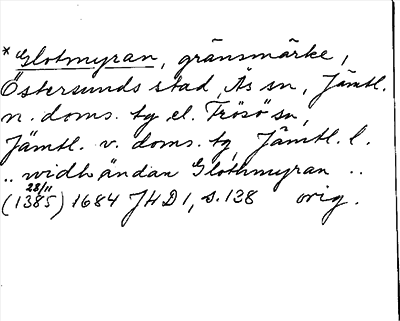 * Glotmyran, gränsmärke,
Östersunds stad, Ås sn, Jämtl.
n. doms. tg el. Frösö sn,
Jämtl. v. doms. tg, Jämtl. l.
.. widh ändan Glothmyran ..
28/11
(1385) 1684 JHD 1, s. 138 orig.